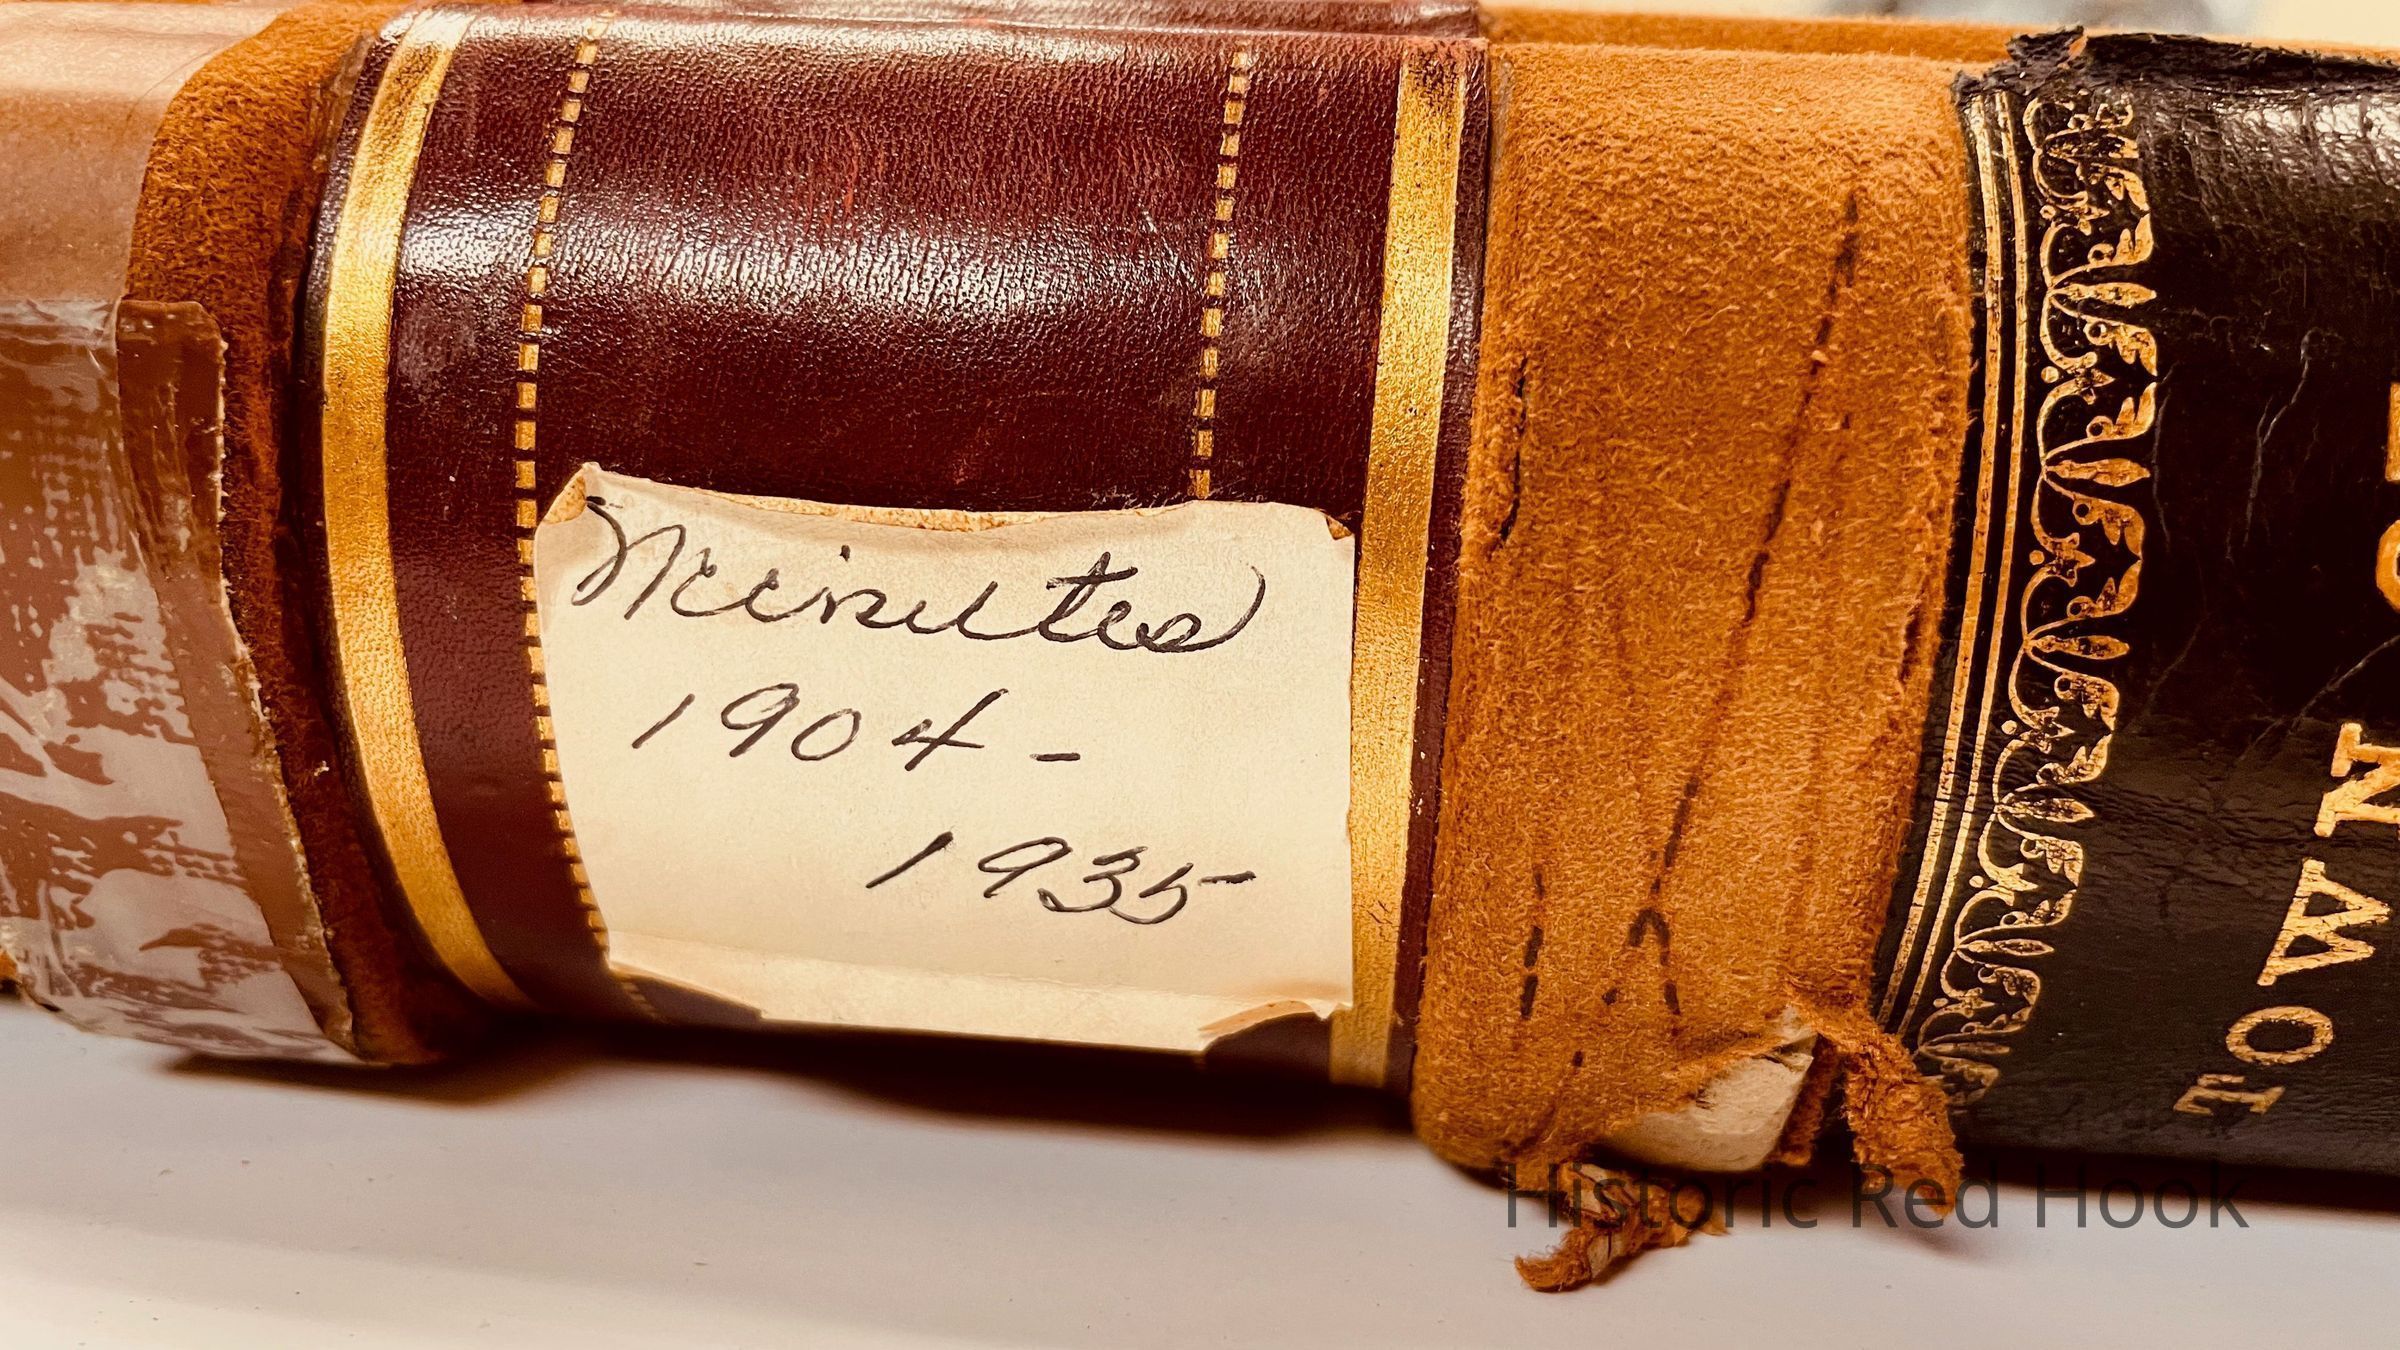 Minutes
1904-
1935
TOWN
Historic Red Hook